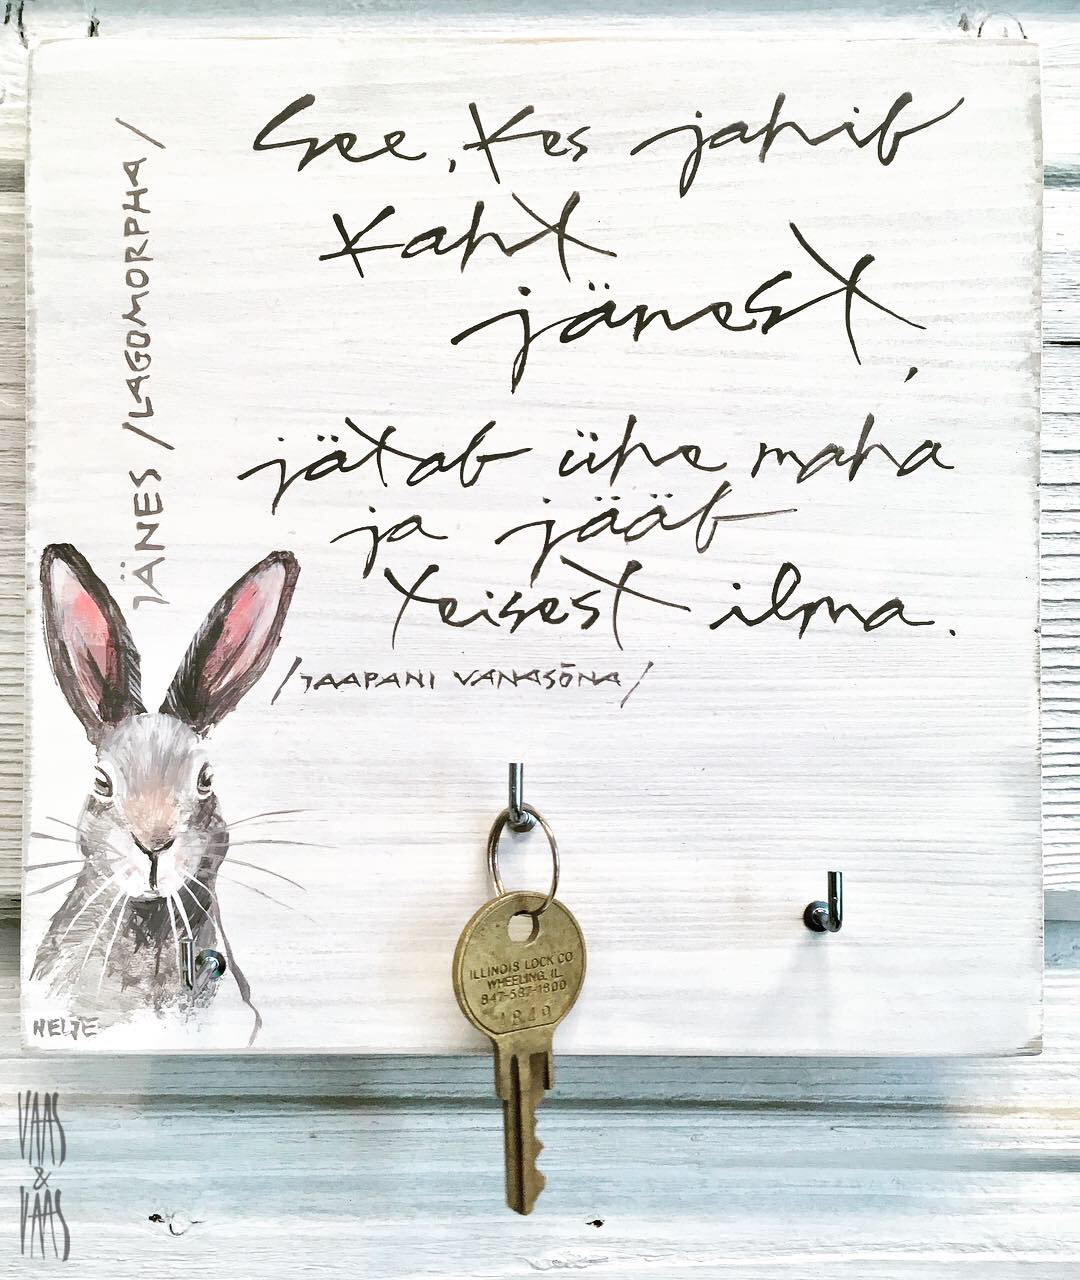 See, kes jahib
kaht
jänest,
jätab ühe maha
ja jääb
teisest ilma.
/JAAPANI VANASÕNA/
JÄNES /LAGOMORPHA/
HELJE
ILLINOIS LOCK CO
WHEELING, IL
847-537-1800
1849
VAAS
&
VAAS